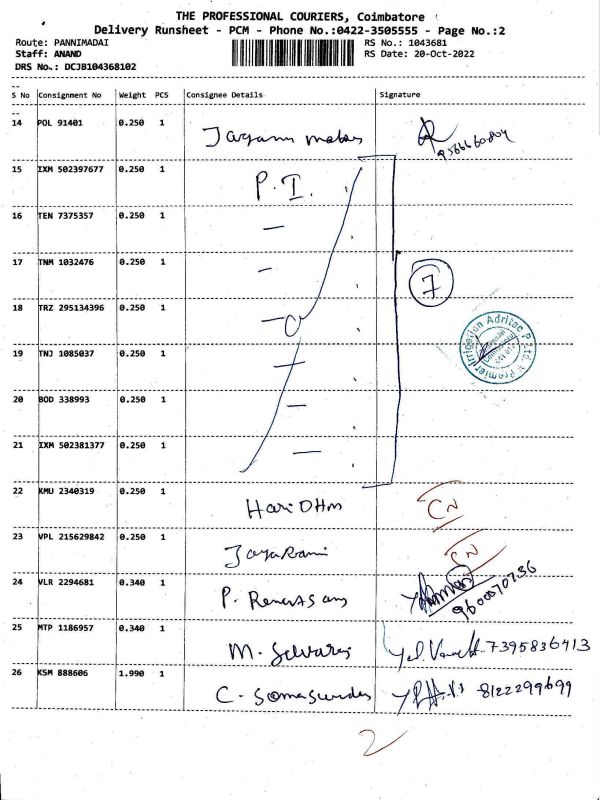 THE PROFESSIONAL COURIERS, Coimbatore
Delivery Runsheet - PCM - Phone No.:0422-3505555 - Page No.:2
Route: PANNIMADAI RS No.: 1043681
Staff: ANAND RS Date: 20-Oct-2022
DRS No.: DCJB104368102
S No Consignment No Weight PCS Consignee Details Signature
14 POL 91401 0.250 1
15 IXM 502397677 0.250 1 P.I.
16 TEN 7375357 0.250 1 —
17 TNM 1032476 0.250 1 —
7
18 TRZ 295134396 0.250 1 —
Premier Irrigation Adritec P Ltd.
19 TNJ 1085037 0.250 1 —
20 BOD 338993 0.250 1 —
21 IXM 502381377 0.250 1 —
22 KMU 2340319 0.250 1 Hari OHm CN
23 VPL 215629842 0.250 1 JayaRami CN
24 VLR 2294681 0.340 1 P.
25 MTP 1186957 0.340 1 M. Selvaraj 7395836413
26 KSM 888606 1.990 1 C. Somasundar 8122299699
2